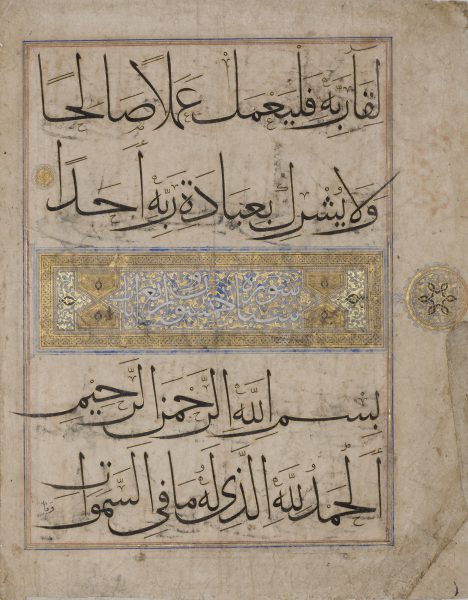 لِقَآءَ رَبِّهِ فَلْيَعْمَلْ عَمَلًا صَالِحًا
وَلَا يُشْرِكْ بِعِبَادَةِ رَبِّهِ أَحَدًا
سورة سبا خمسون
بِسْمِ اللَّهِ الرَّحْمَنِ الرَّحِيمِ
أَلْحَمْدُ لِلَّهِ الَّذِى لَهُ مَا فِى السَّمَوَاتِ